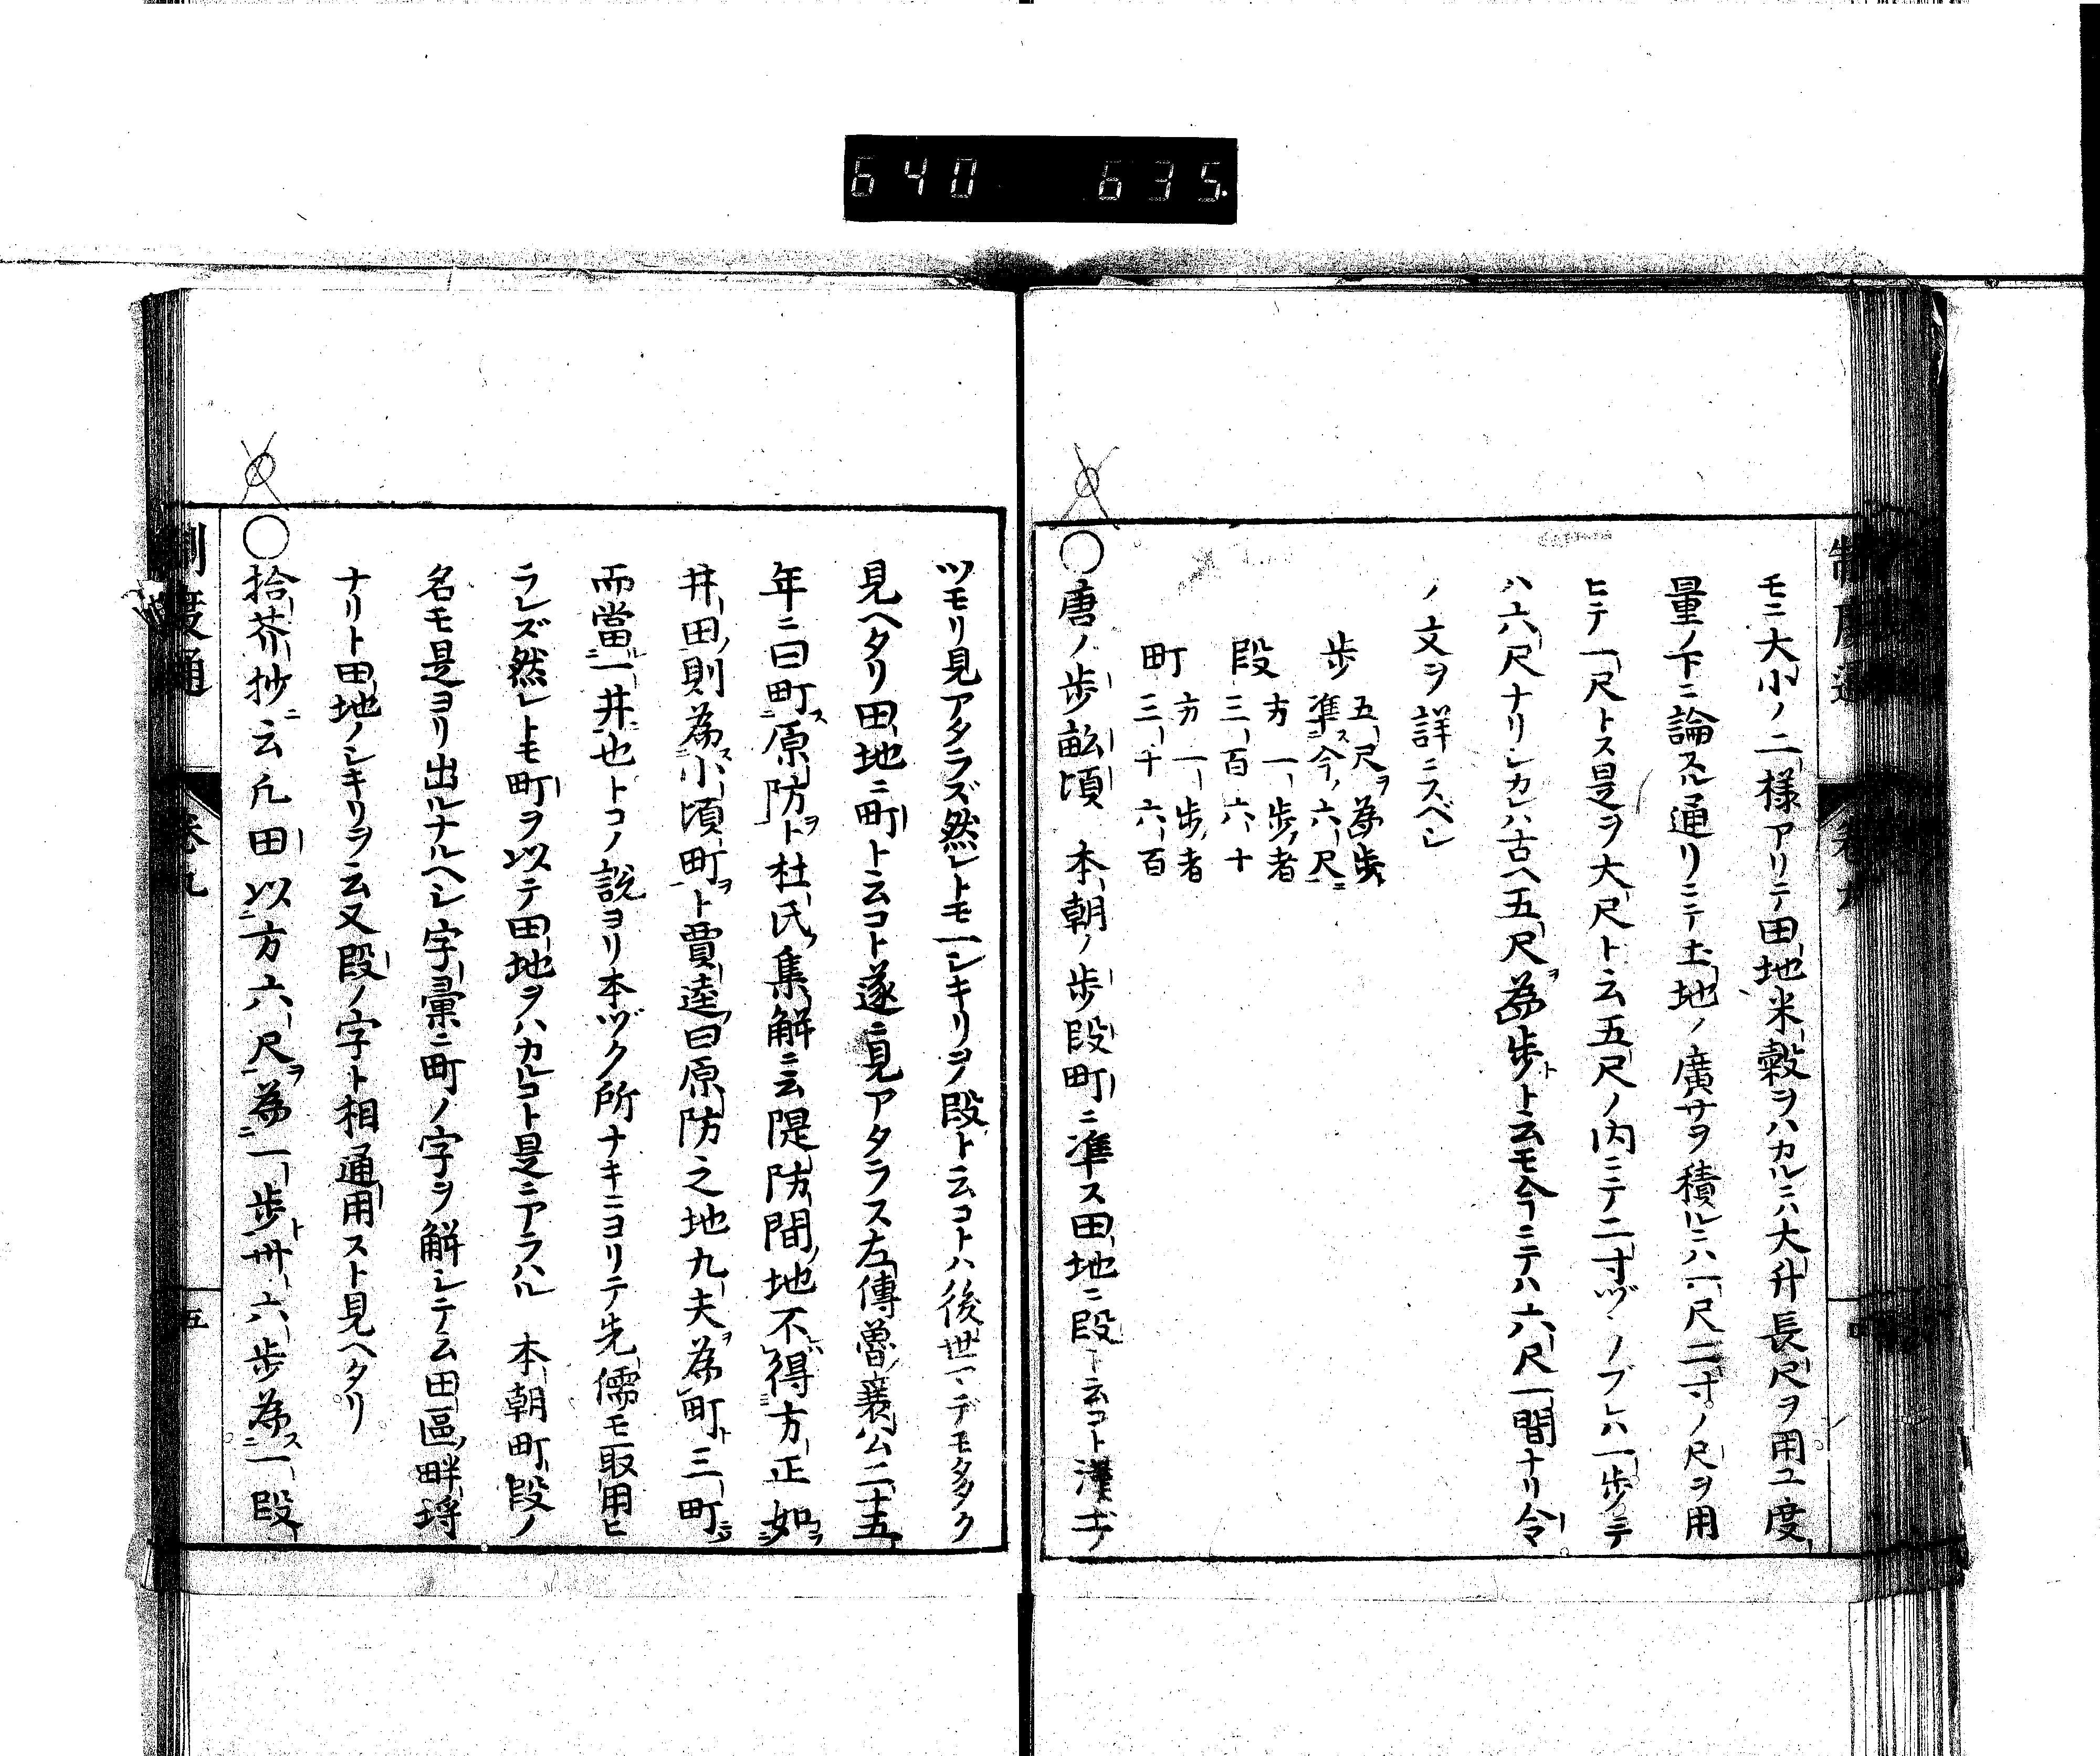 640 635
モニ大小ノ二様アリテ田地米穀ヲハカルニハ大升長尺ヲ用ユ度
量ノ下ニ論スル通リニテ土地ノ廣サヲ積ルニハ一尺二寸ノ尺ヲ用
ヒテ一尺トス是ヲ大尺ト云五尺ノ内ニテ二寸ヅヽノブレハ一歩ニテ
ハ六尺ナリシカレハ古ヘ五尺ヲ為歩ト云モ今ニテハ六尺一間ナリ令
ノ文ヲ詳ニスベシ
歩 五尺ヲ為歩
準ス今ノ六尺ニ
段 方一歩ノ者
三百六十
町 方一歩ノ者
三千六百
○唐ノ歩畝頃 本朝ノ歩段町ニ準ス田地ニ段ト云コト漢ヂ
ツモリ見アタラズ然レトモ一シキリヲ段ト云コトハ後世マデモタタク
見ヘタリ田地ニ町ト云コト遂ニ見アタラス左傳魯ノ襄公二十五
年ニ曰町ス原防ヲト杜氏集解ニ云隄防ノ間ノ地不得方正如
井田ノ則為ス小頃町ヲト賈逵曰原防之地九夫ヲ為町ト三町ニシテ
而當ル一井ニ也トコノ説ヨリ本ヅク所ナキニヨリテ先儒モ取用ヒ
ラレズ然レトモ町ヲ以テ田地ヲハカルコト是ニアラハル 本朝町段ノ
名モ是ヨリ出ルナルヘシ字彙ニ町ノ字ヲ解シテ云田區ノ畔埒
ナリト田地ノシキリヲ云又段ノ字ト相通用スト見ヘタリ
○拾芥抄ニ云凡田以方六尺ヲ為一歩ト卅六歩為ス一段ト
制度通 卷九 五